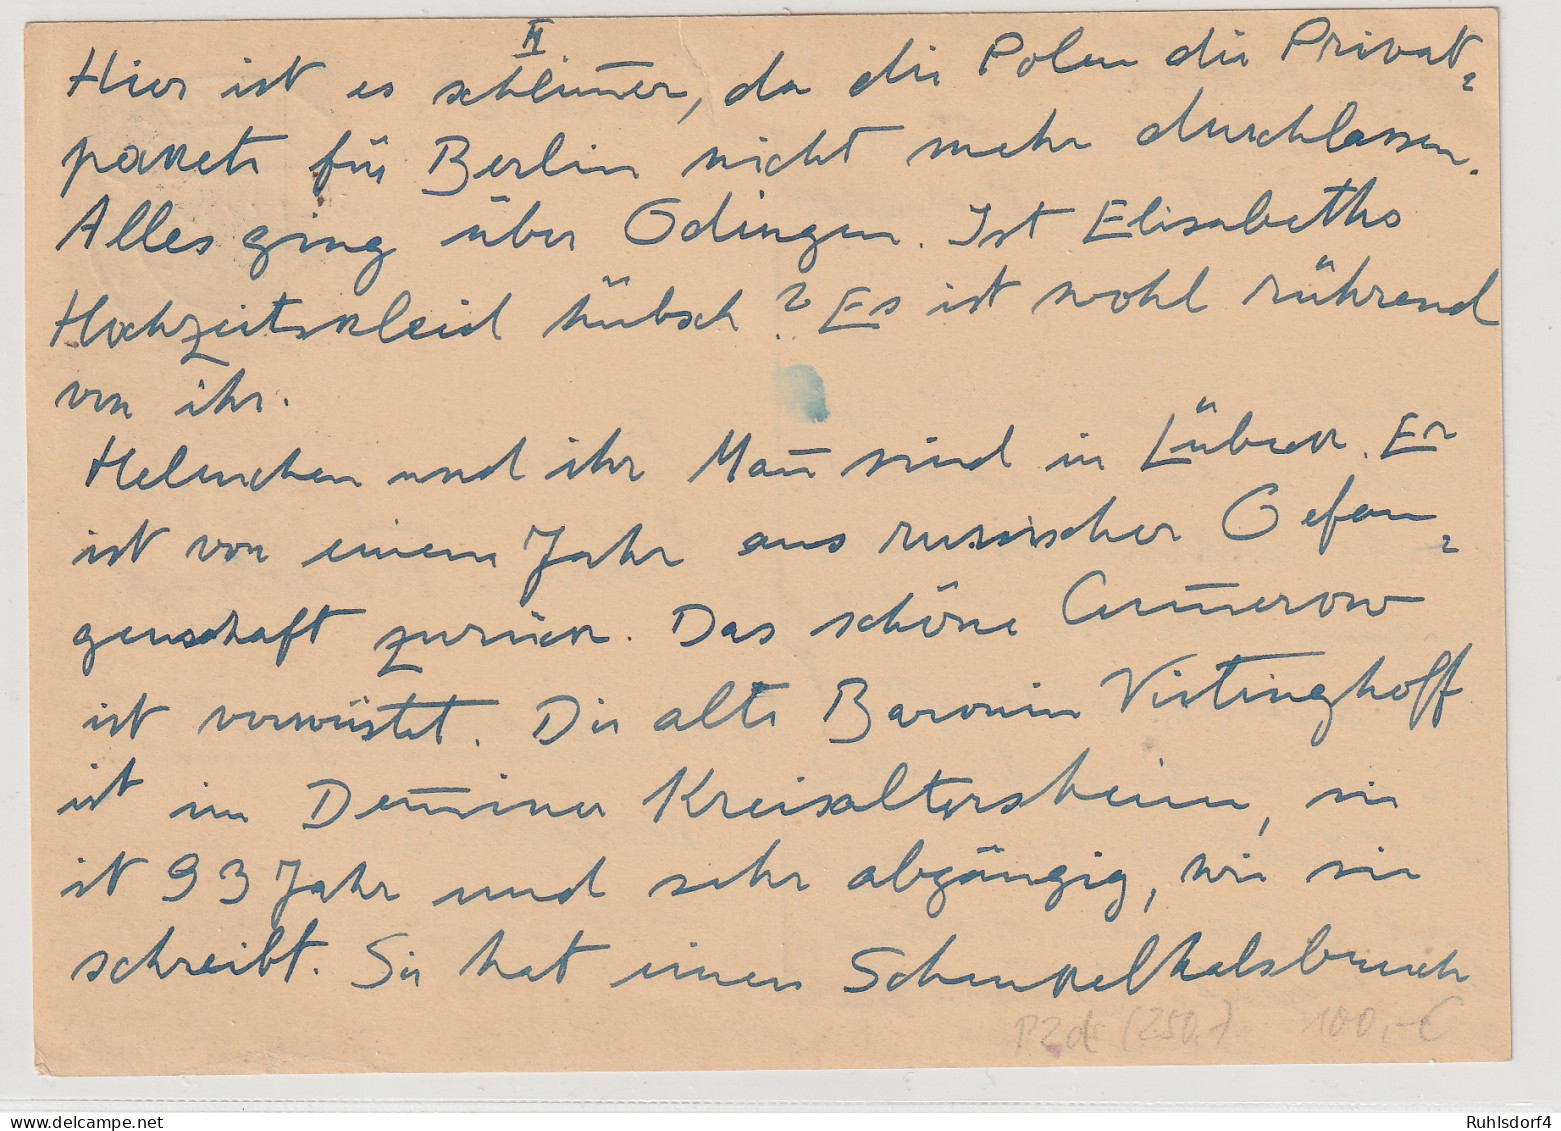 II.
Hier ist es schlim̅er, da die Polen die Privat-
pakete für Berlin nicht mehr durchlassen.
Alles ging über Gdingen. Ist Elisabeths
Hochzeitskleid hübsch? Es ist wohl rührend
von ihr.
Helmchen und ihr Man̅ sind in Lübeck. Er
ist vor einem Jahr aus russischer Gefan-
genschaft zurück. Das schöne Cum̅erow
ist verwüstet. Die alte Baronin Vietinghoff
ist im Dem̅iner Kreisaltersheim, sie
ist 93 Jahr und sehr abgängig, wie sie
schreibt. Sie hat einen Schenkelhalsbruch
(250,-) 100,-€
delcampe.net
Ruhlsdorf4